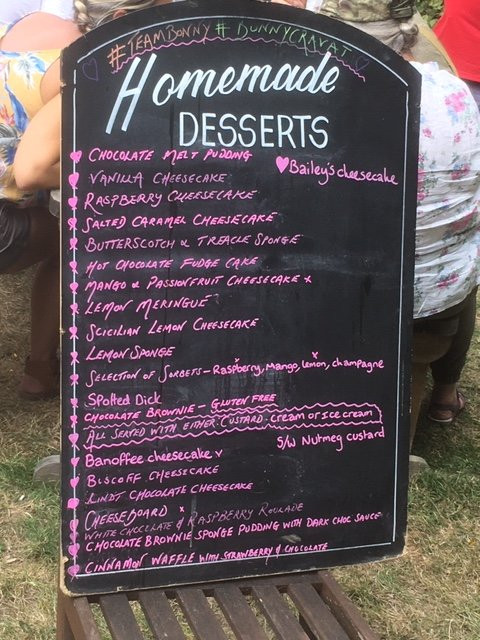 #TEAMBONNY #BUNNYCRAVAT
Homemade
DESSERTS
CHOCOLATE MELT PUDDING
Bailey's cheesecake
VANILLA CHEESECAKE
RASPBERRY CHEESECAKE
SALTED CARAMEL CHEESECAKE
BUTTERSCOTCH & TREACLE SPONGE
HOT CHOCOLATE FUDGE CAKE
MANGO & PASSIONFRUIT CHEESECAKE x
LEMON MERINGUE
SCICILIAN LEMON CHEESECAKE
LEMON SPONGE
SELECTION OF SORBETS - Raspberry, Mango, lemon, champagne
Spotted Dick
CHOCOLATE BROWNIE - GLUTEN FREE
ALL SERVED WITH EITHER CUSTARD CREAM or ICE CREAM
S/W Nutmeg custard
Banoffee cheesecake v
BISCOFF CHEESECAKE
LINDT CHOCOLATE CHEESECAKE
CHEESEBOARD x
WHITE CHOCOLATE & RASPBERRY ROULADE
CHOCOLATE BROWNIE SPONGE PUDDING WITH DARK CHOC SAUCE
CINNAMON WAFFLE WITH STRAWBERRY & CHOCOLATE